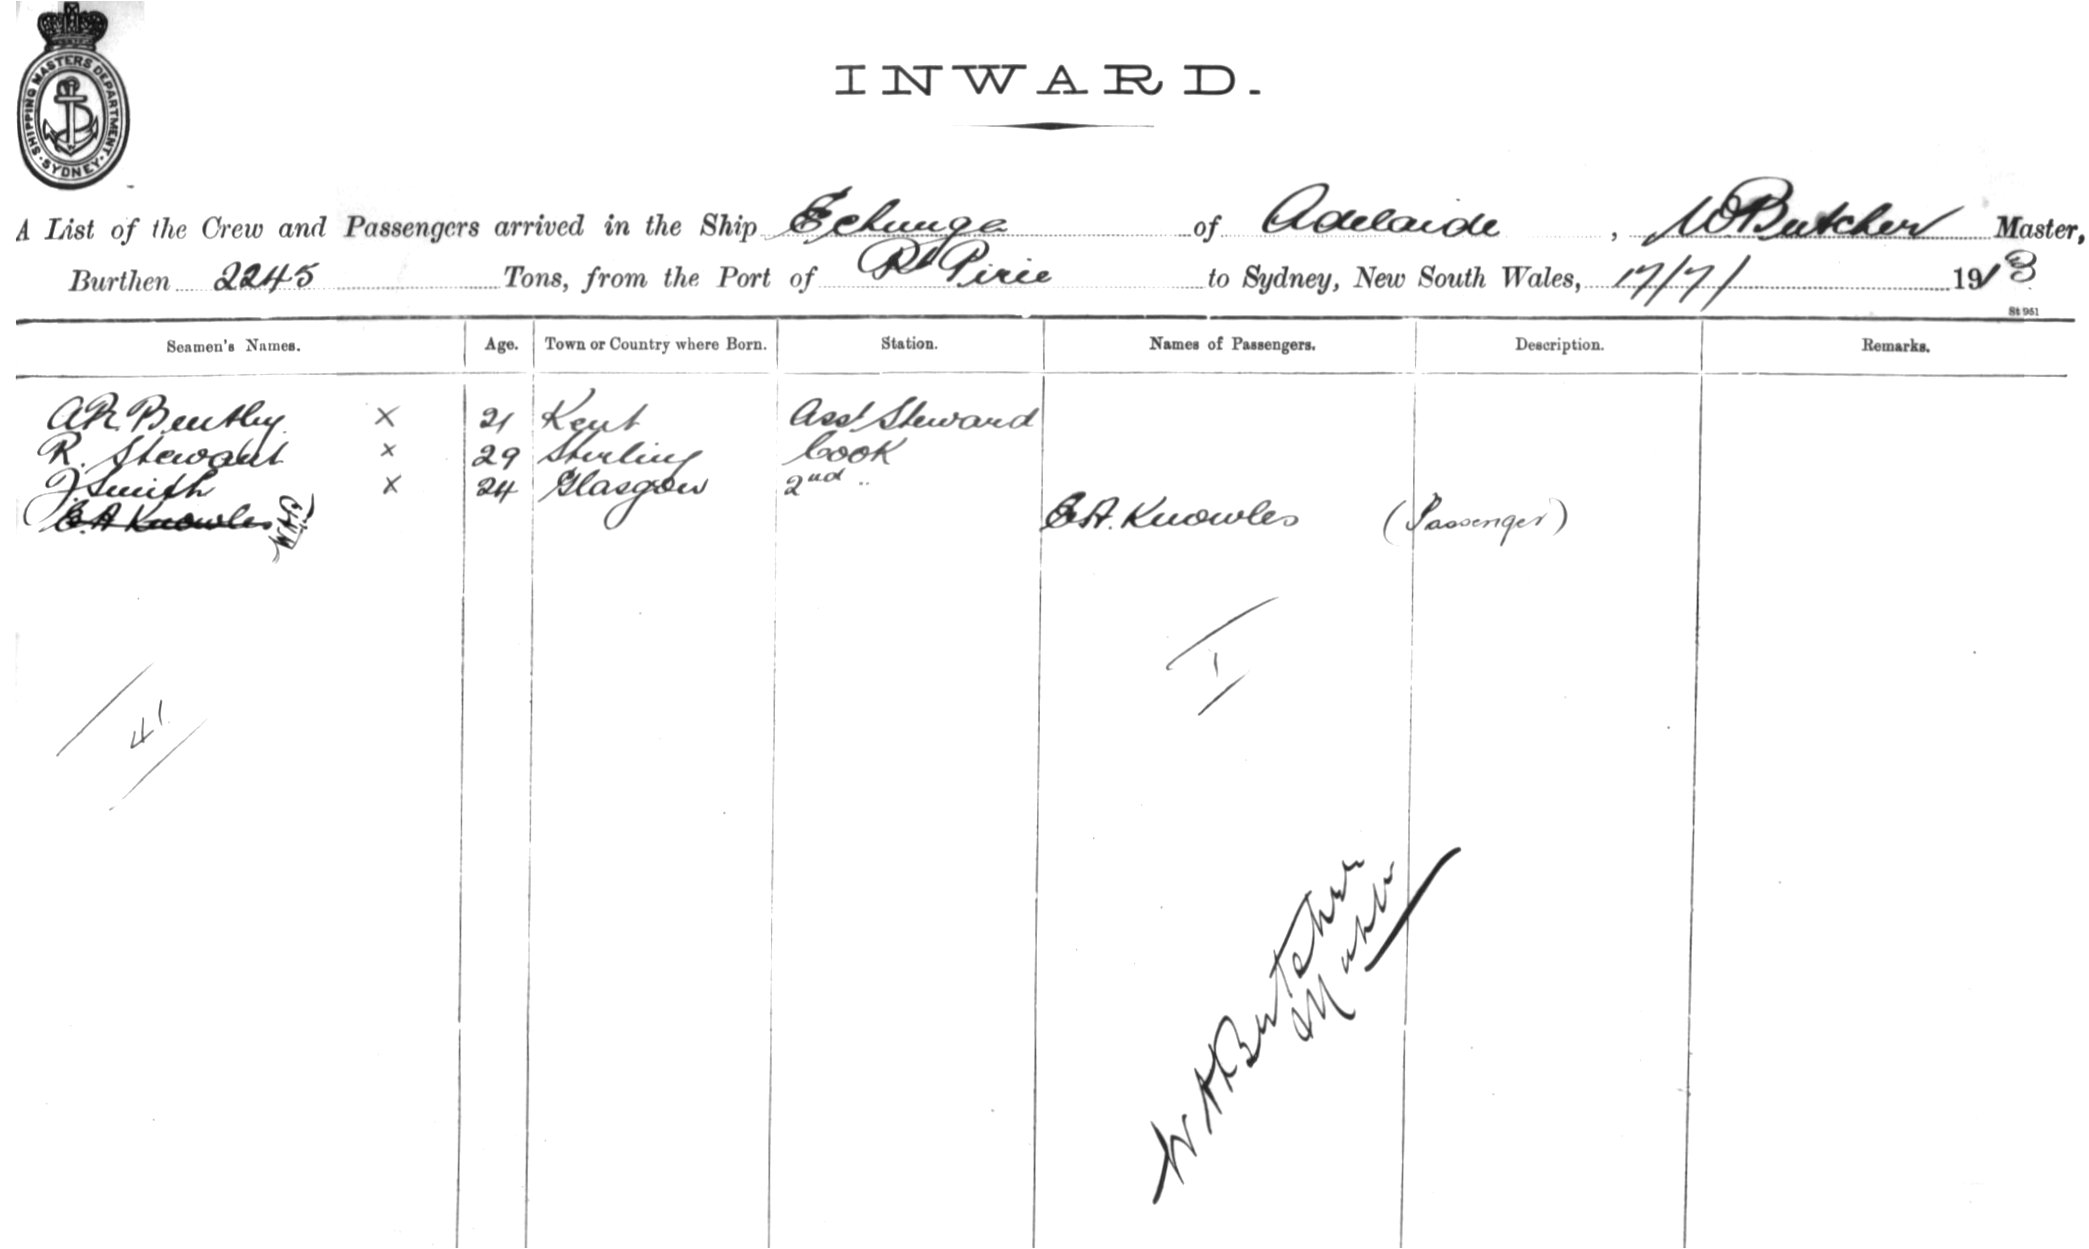 SHIPPING MASTERS DEPARTMENT
SYDNEY
INWARD.
A List of the Crew and Passengers arrived in the Ship Echunga of Adelaide, W Butcher Master,
Burthen 2245 Tons, from the Port of Pt Pirie to Sydney, New South Wales, 17/7/ 1913
St 951
Seamen's Names. Age. Town or Country where Born. Station. Names of Passengers. Description. Remarks.
A R. Bentley X 21 Kent Asst Steward
R. Stewart X 29 Sterling Cook
J. Smith X 24 Glasgow 2nd "
E. A Knowles WAB E. A. Knowles (Passenger)
1
41
W A Butcher
Master